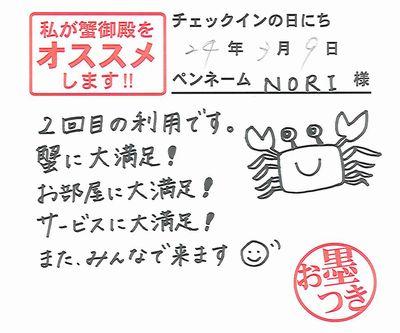 私が蟹御殿を
オススメ
します!!
チェックインの日にち
24年3月9日
ペンネーム NORI 様
2回目の利用です。
蟹に大満足!
お部屋に大満足!
サービスに大満足!
また、みんなで来ます
お墨つき